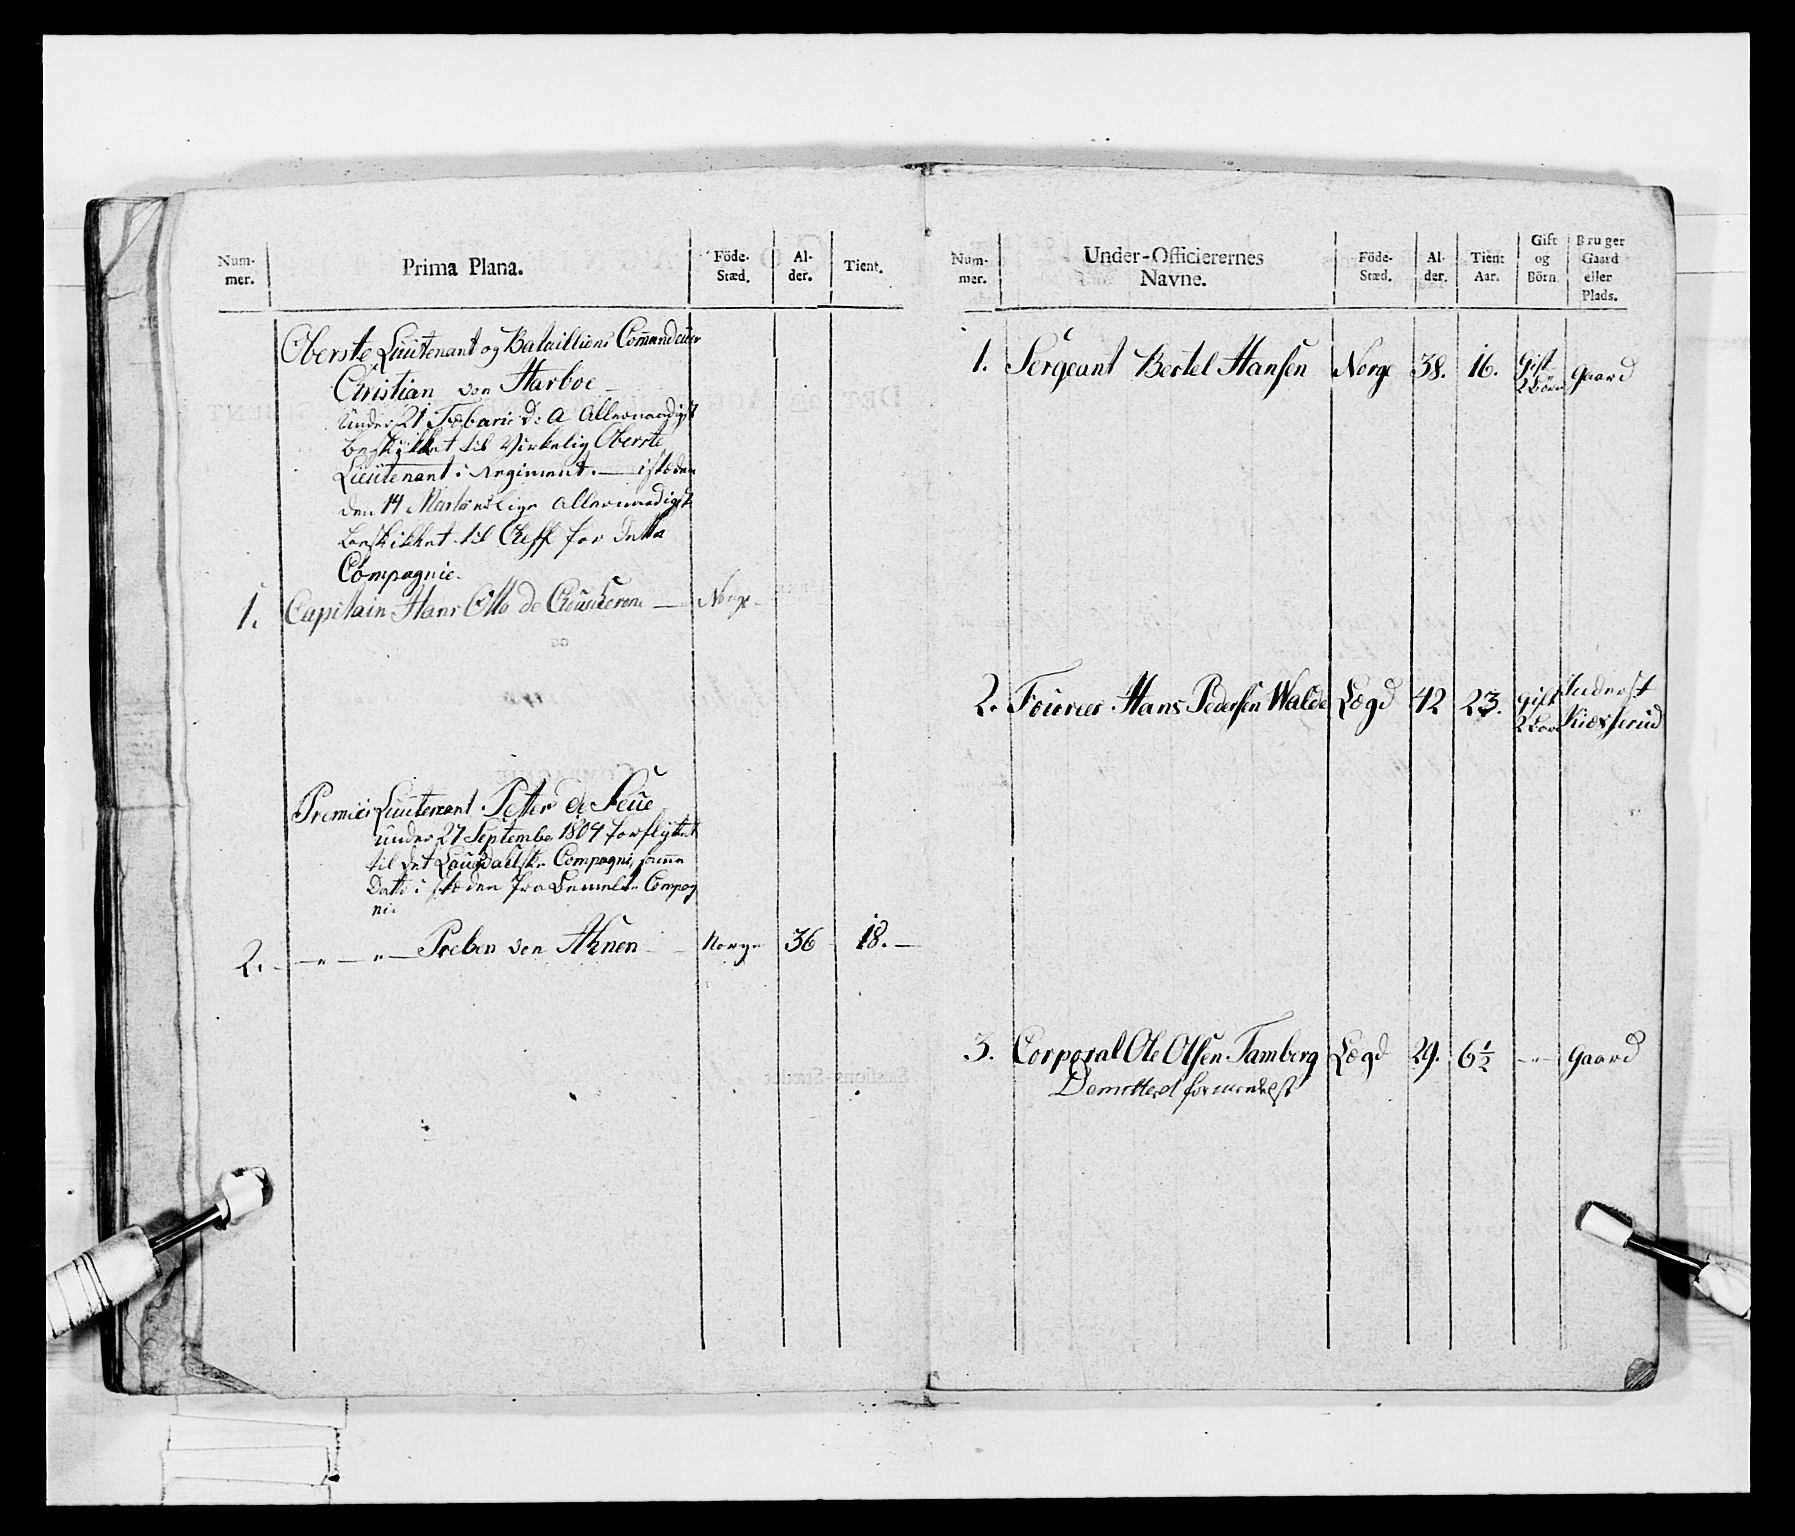 Num-
mer.
Prima Plana.
Föde-
Stæd.
Al-
der.
Tient.
Oberste Lieutenant og Batailions Commandeur
Christian von Harboe
under 21 Febuari d: A Allernaadigst
beskikket til Virkelig Oberste
Lieutenant i Regiment. — i stæden
den 14 Martii Allernaadigst
beskikket til Cheff for dette
Compagnie.
1. Capitain Hans Otto de — Norge.
Premier Lieutenant Petter de Seue
under 27 September 1804 forflyttet
til det Laugdalske Compagni, samme
Dato i stæden fra Compag
ni.
2. — " — " — Preben von Ahnen — Norge 36 18. —
Num-
mer.
Under-Officierernes
Navne.
Föde-
Stæd.
Al-
der.
Tient
Aar.
Gift
og
Börn
Bruger
Gaard
eller
Plads.
1. Sergeant Bertel Hansen Norge 38. 16. Gift
2 Börn Gaard
2. Fourier Hans Pedersen Walde Lægd 42 23. Gift
2 Börn Inderst
3. Corporal Ole Olsen Tamberg Lægd 29. 6½ — " — Gaard